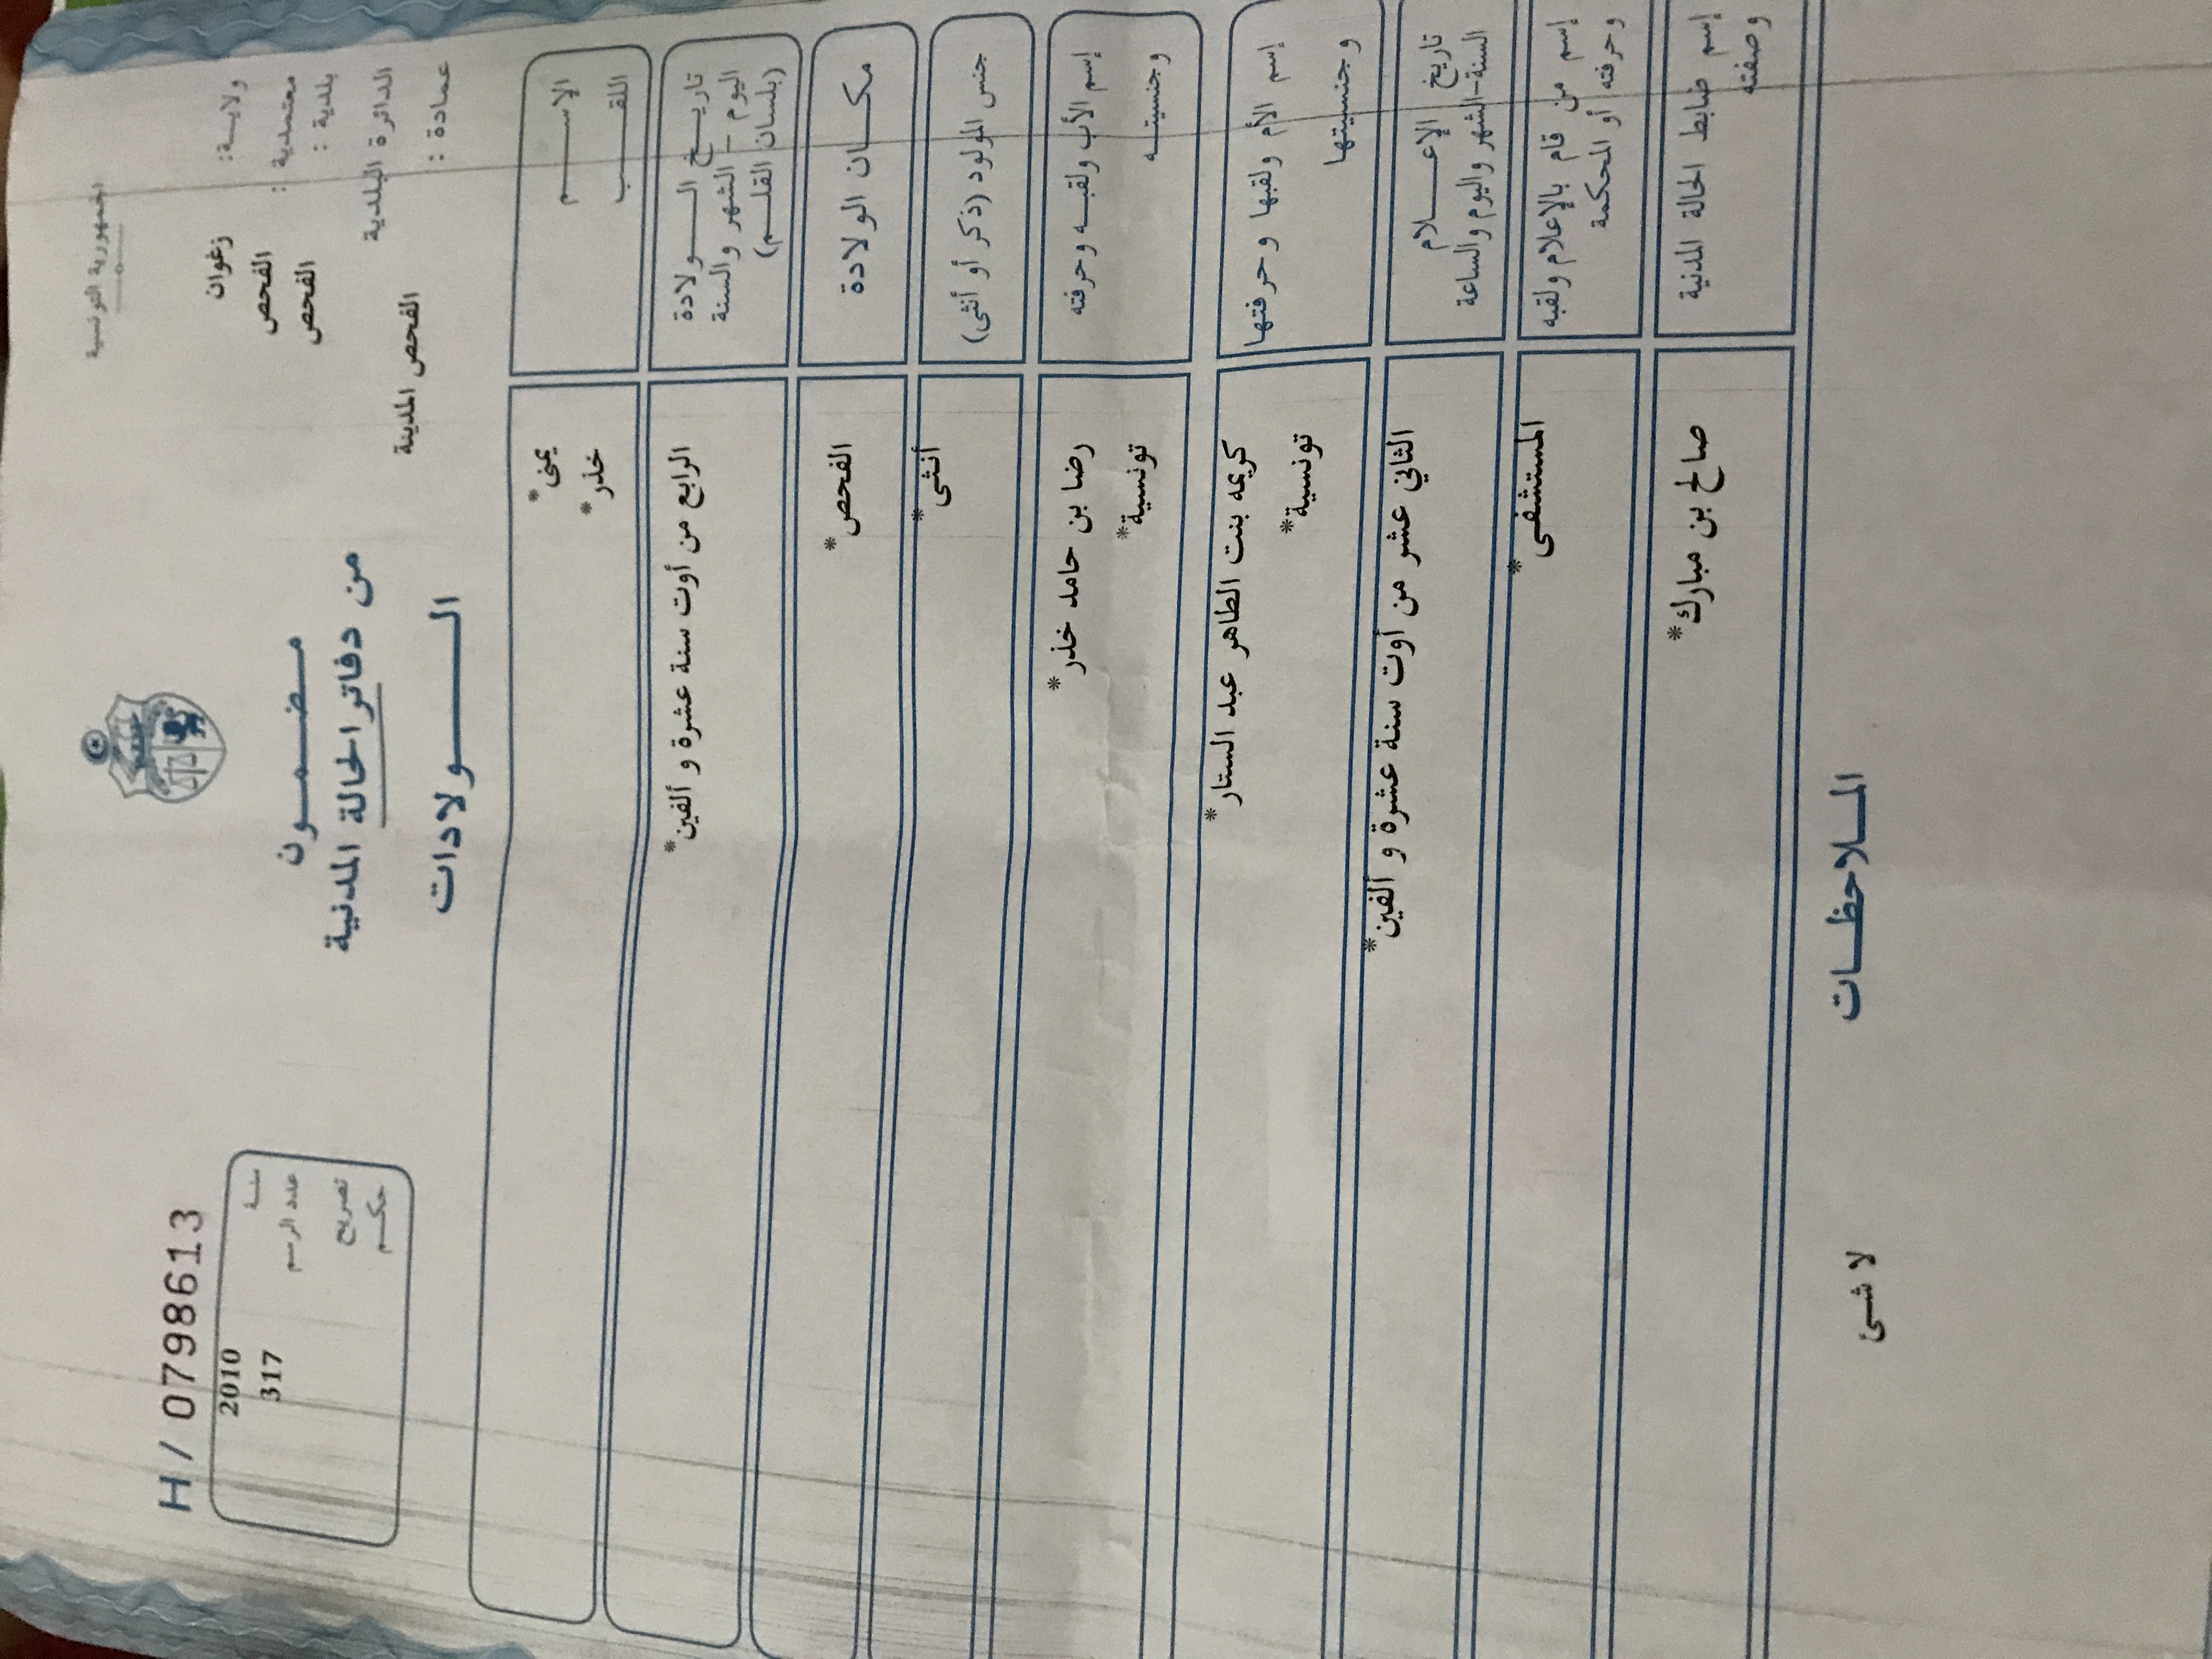 الجمهورية التونسية
ولاية: زغوان
معتمدية : الفحص
بلدية : الفحص
الدائرة البلدية
الفحص المدينة
عمادة :
مضمون
من دفاتر الحالة المدنية
الولادات
H/ 0798613
سنة 2010
عدد الرسم 317
تصريح
حكم
الإسم يمنى*
اللقب خذر*
تاريخ الولادة
اليوم - الشهر والسنة
(بلسان القلم)
الرابع من أوت سنة عشرة و ألفين*
مكان الولادة الفحص*
جنس المولود (ذكر أو أنثى) أنثى*
إسم الأب ولقبه وحرفته رضا بن حامد خذر*
وجنسيته تونسية*
إسم الأم ولقبها وحرفتها كريمه بنت الطاهر عبد الستار*
وجنسيتها تونسية*
تاريخ الإعلام
السنة-الشهر واليوم والساعة
الثاني عشر من أوت سنة عشرة و ألفين*
إسم من قام بالإعلام ولقبه
وحرفته أو المحكمة
المستشفى*
إسم ضابط الحالة المدنية
وصفته
صالح بن مبارك*
الملاحظات
لا شئ